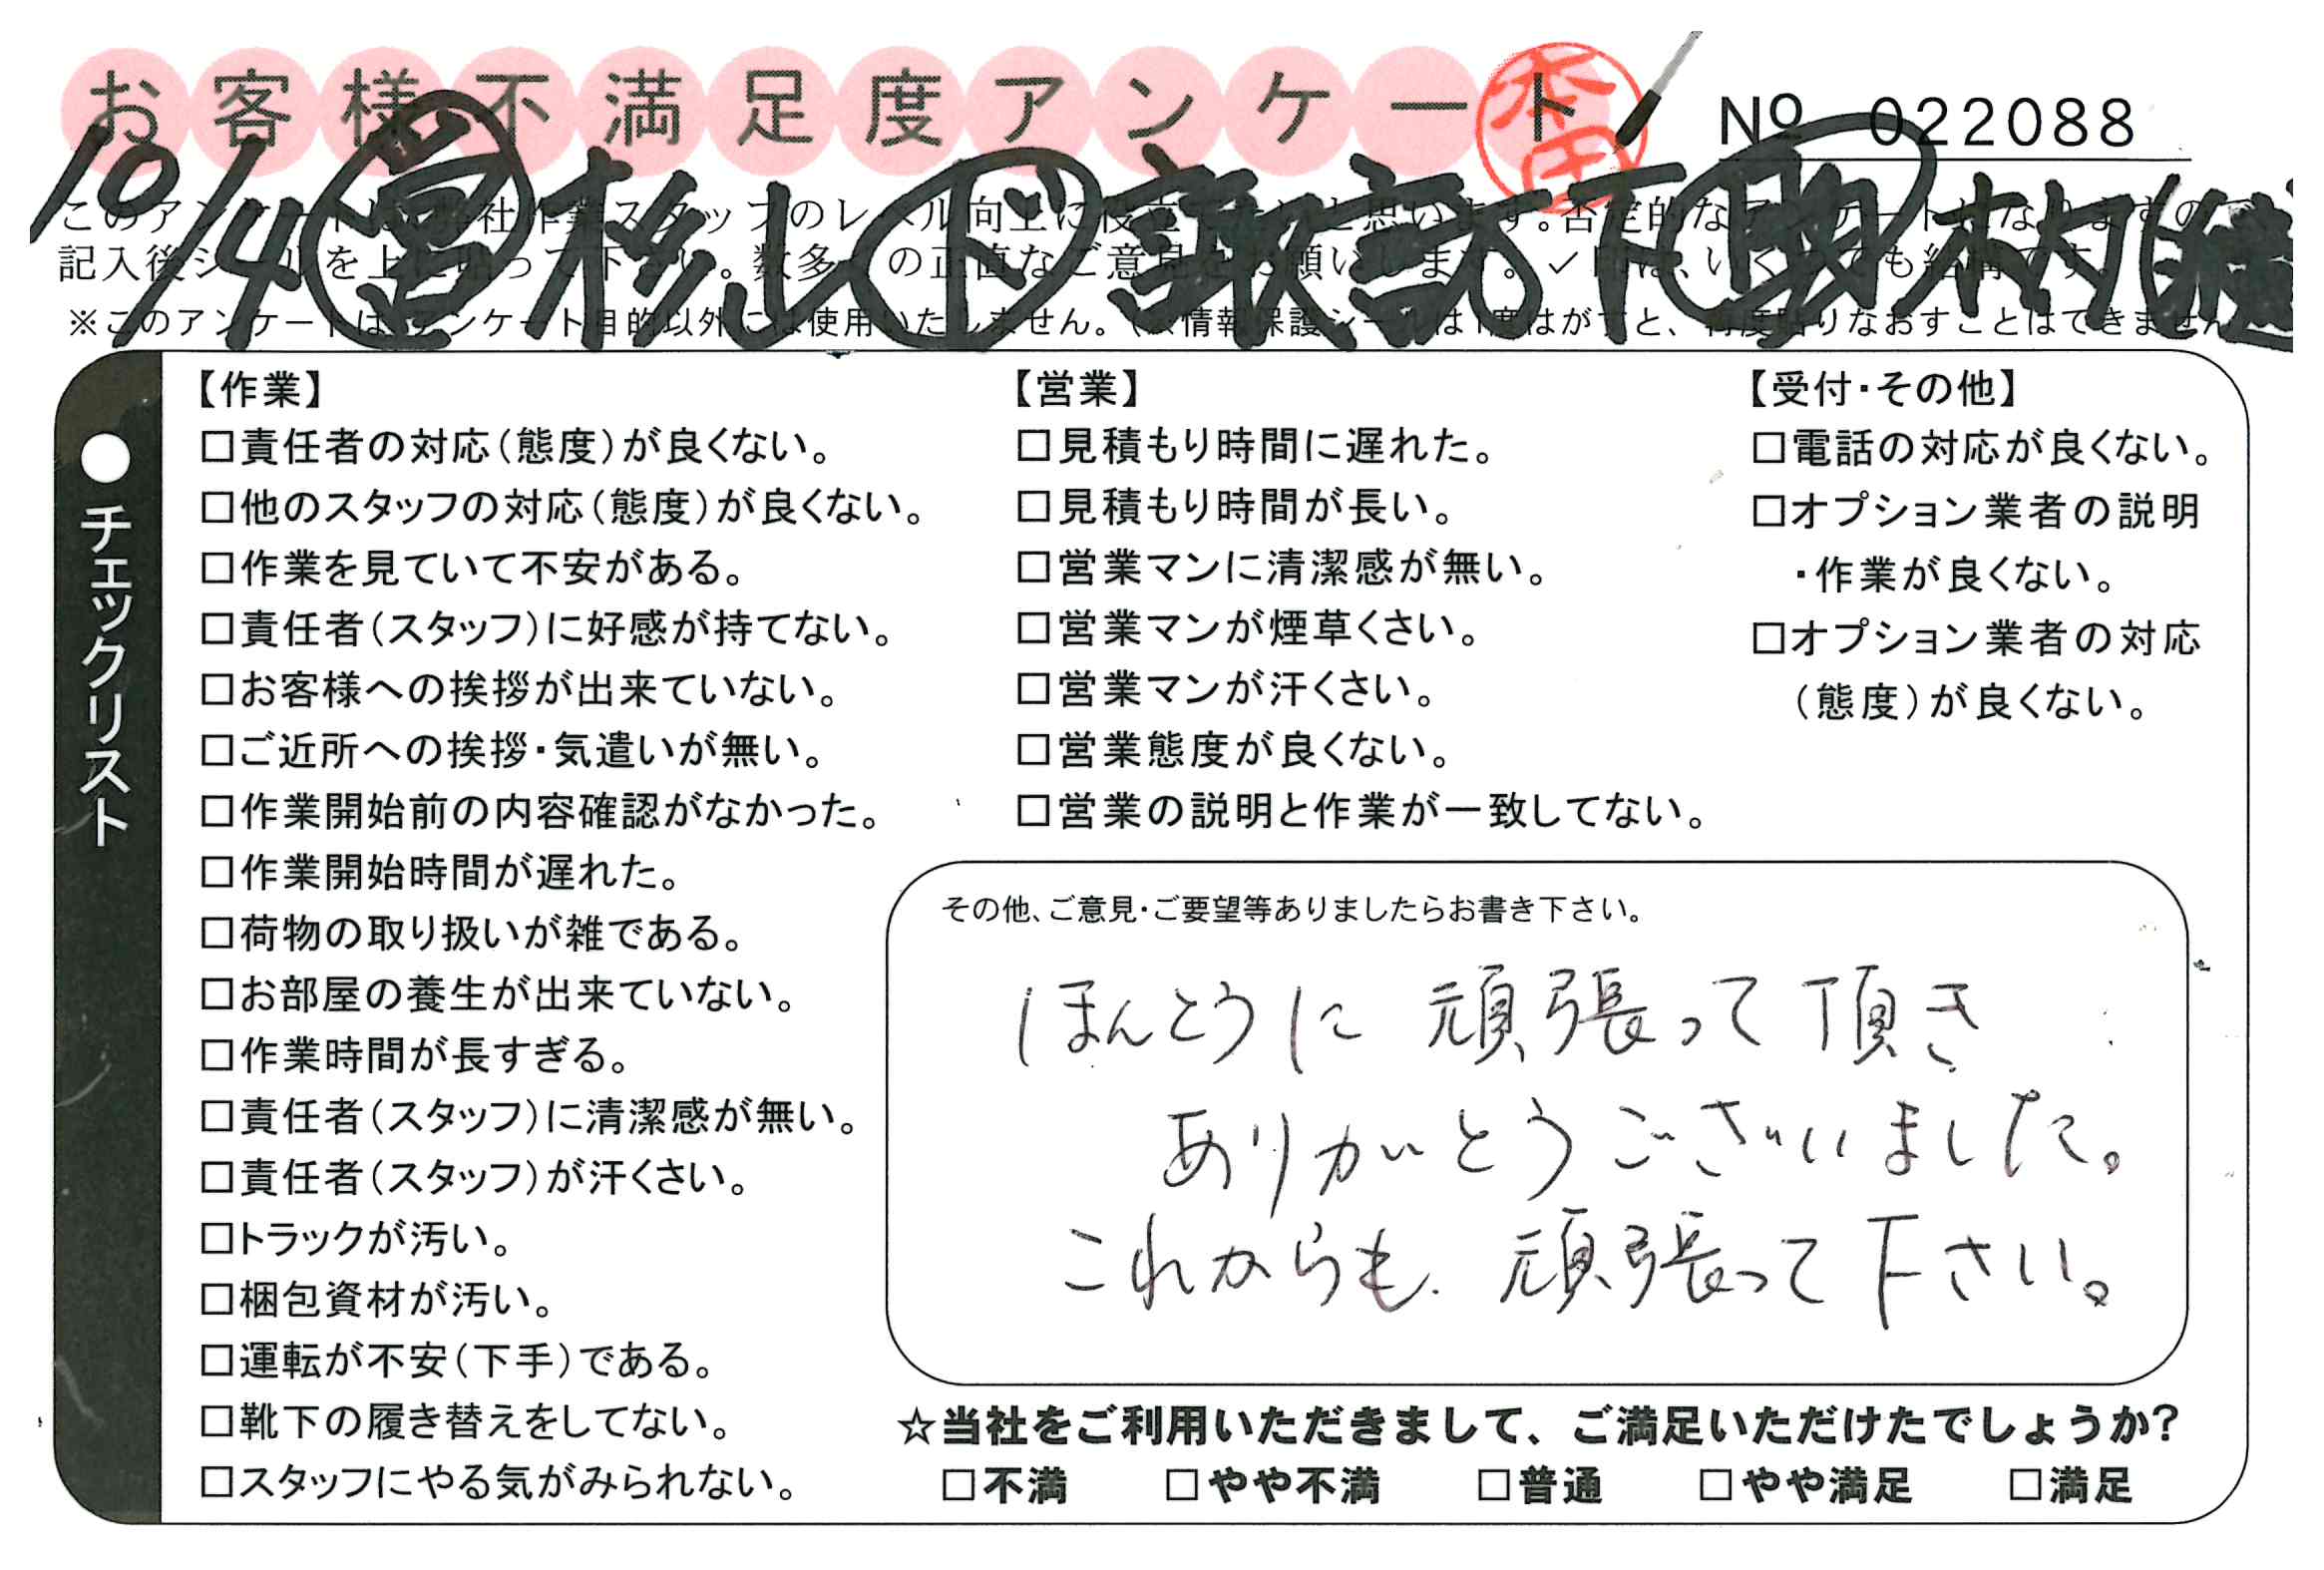 お客様不満足度アンケート
本田
No 022088
10/4 営 杉山 ド 諏訪下 助 木村
記入後シールを上に貼って下さい。数多くの正直なご意見をお願いします。✓印は、いくつでも結構です。
※このアンケートは、アンケート目的以外には使用いたしません。(※情報保護シールは1度はがすと、再度貼りなおすことはできません
●チェックリスト
【作業】
□責任者の対応(態度)が良くない。
□他のスタッフの対応(態度)が良くない。
□作業を見ていて不安がある。
□責任者(スタッフ)に好感が持てない。
□お客様への挨拶が出来ていない。
□ご近所への挨拶・気遣いが無い。
□作業開始前の内容確認がなかった。
□作業開始時間が遅れた。
□荷物の取り扱いが雑である。
□お部屋の養生が出来ていない。
□作業時間が長すぎる。
□責任者(スタッフ)に清潔感が無い。
□責任者(スタッフ)が汗くさい。
□トラックが汚い。
□梱包資材が汚い。
□運転が不安(下手)である。
□靴下の履き替えをしてない。
□スタッフにやる気がみられない。
【営業】
□見積もり時間に遅れた。
□見積もり時間が長い。
□営業マンに清潔感が無い。
□営業マンが煙草くさい。
□営業マンが汗くさい。
□営業態度が良くない。
□営業の説明と作業が一致してない。
【受付・その他】
□電話の対応が良くない。
□オプション業者の説明
・作業が良くない。
□オプション業者の対応
(態度)が良くない。
その他、ご意見・ご要望等ありましたらお書き下さい。
ほんとうに 頑張って頂き
ありがとうございました。
これからも 頑張って下さい。
☆当社をご利用いただきまして、ご満足いただけたでしょうか?
□不満 □やや不満 □普通 □やや満足 □満足